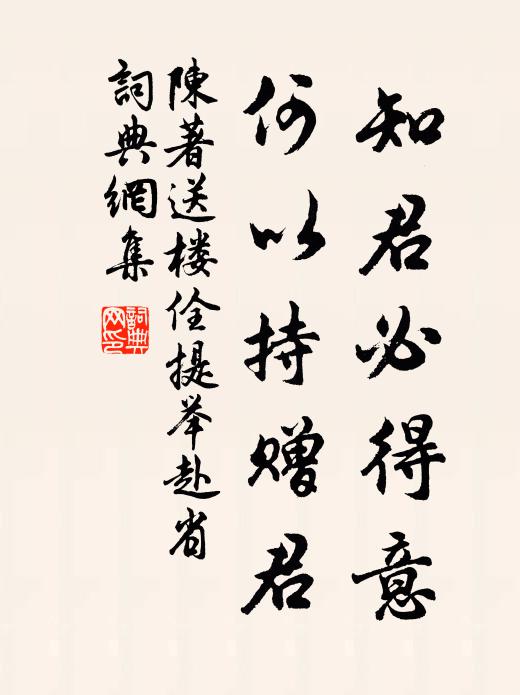 知君必得意
何以持赠君
陳著送楼佺提举赴省
詞典網集
詞典
网印